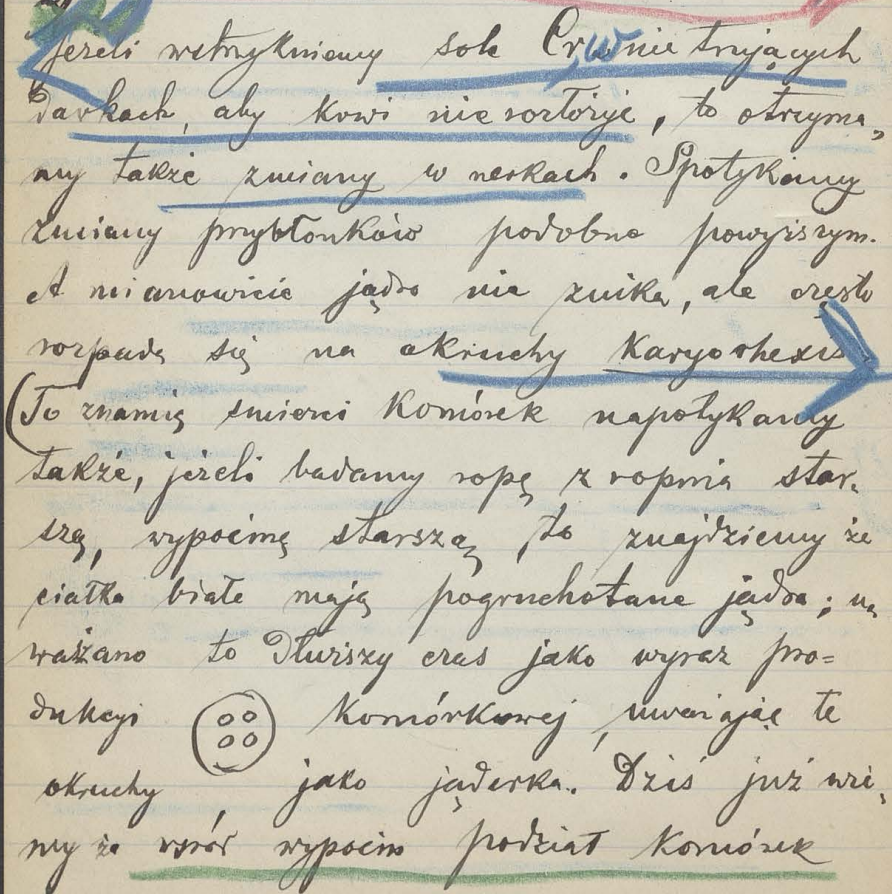 Jeżeli wstrzykniemy sole Cr, w nie trujących
dawkach, aby krwi nie rozłożyć, to otrzyma„
my także zmiany w nerkach. Spotykamy
zmiany przybłonków podobne powyższym.
A mianowicie jądro nie znika, ale często
rozpada się na okruchy Karyorhexis
(To znamię śmierci komórek napotykamy
także, jeżeli badamy ropę z ropnia star„
szą, wypocinę starszą, to znajdziemy że
ciałka białe mają pogruchotane jądra; u„
ważano to dłuższy czas jako wyraz pro=
dukcyi komórkowej, uważając te
okruchy jako jąderka. Dziś już wie„
my że wśród wypocin podział komórek